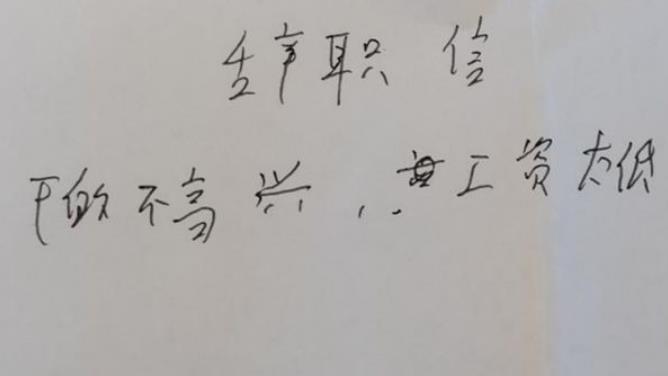 辞职信
干的不高兴,工资太低